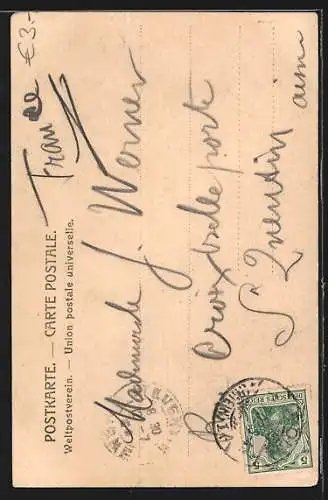 € 3.-
POSTKARTE. — CARTE POSTALE.
Weltpostverein. — Union postale universelle.
Mademoiselle J. Werner
Croix belle porte
St Quentin
Aisne
France
DEUTSCHES REICH
5 5